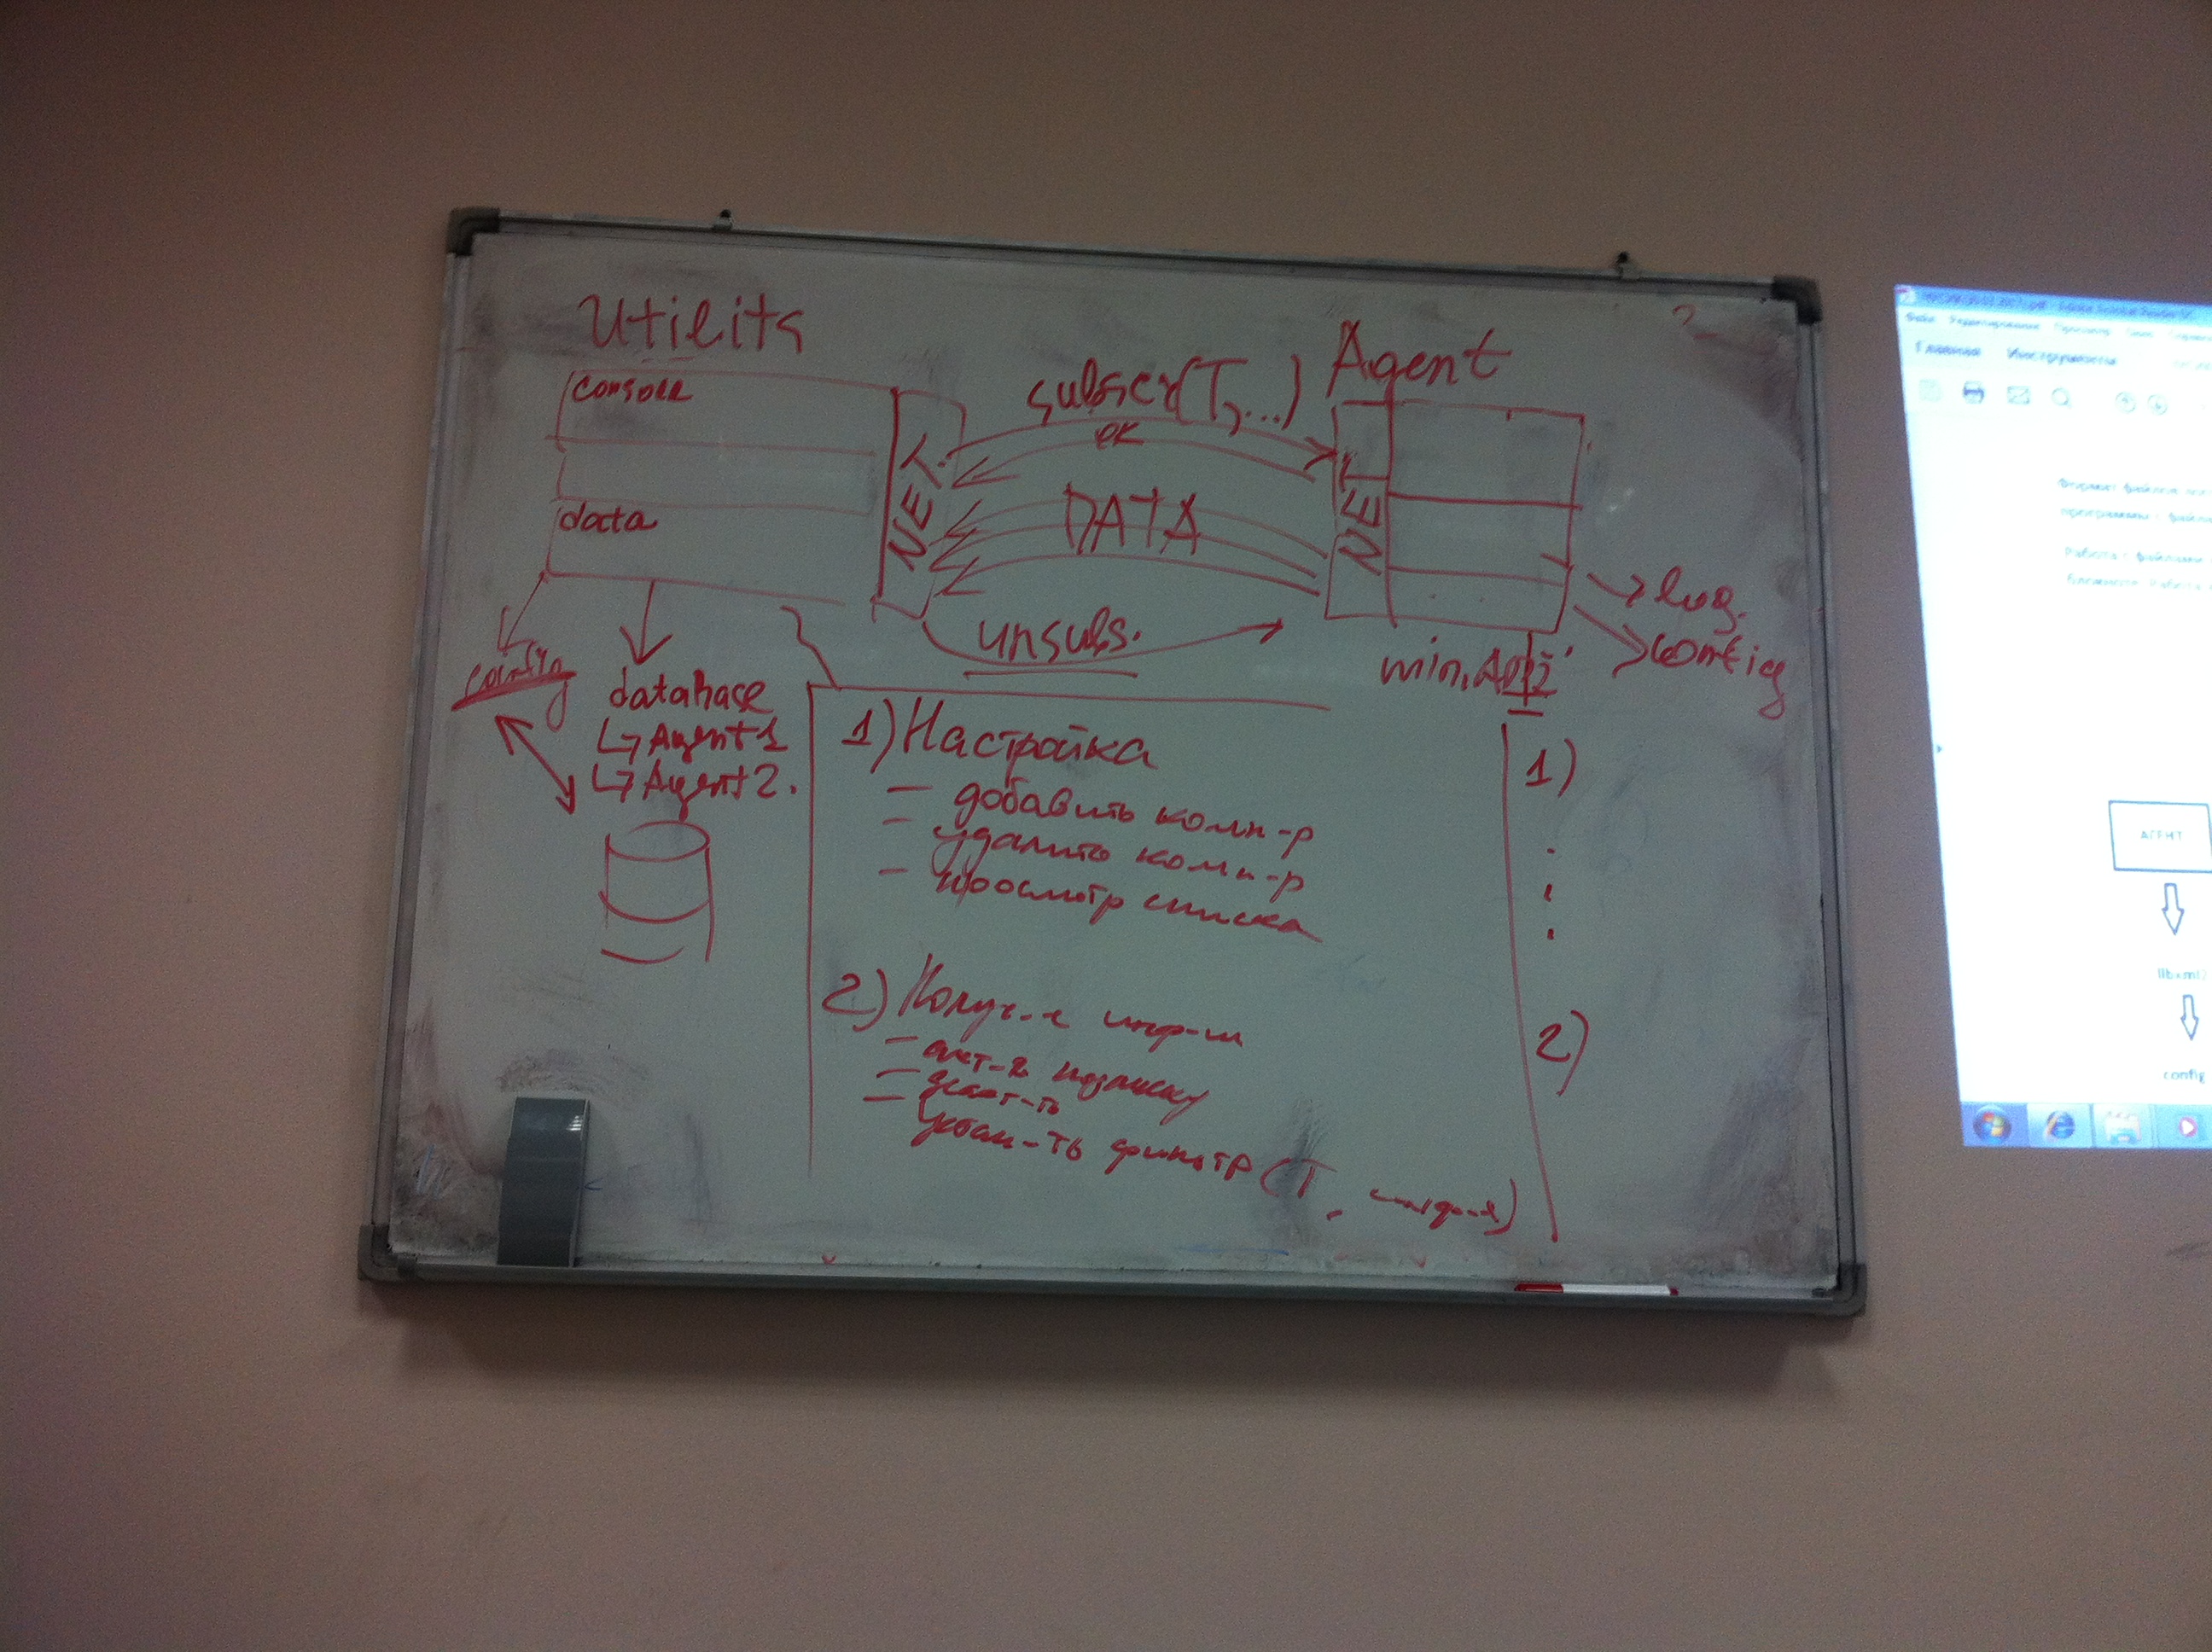 Utilits
console
data
NET
subscr(T,...)
ok
DATA
unsubs.
Agent
NET
log.
config
win.App
config
database
Agent1
Agent2.
1) Настройка
- добавить комп-р
- удалить комп-р
- просмотр списка
2) Получ-е инф-ии
- акт-ть подписку
- деакт-ть
- устан-ть фильтр (T,
1)
2)
Главная Инструменты
Формат файлов
программы с файла
Работа с файлами
АГЕНТ
libxml2
config